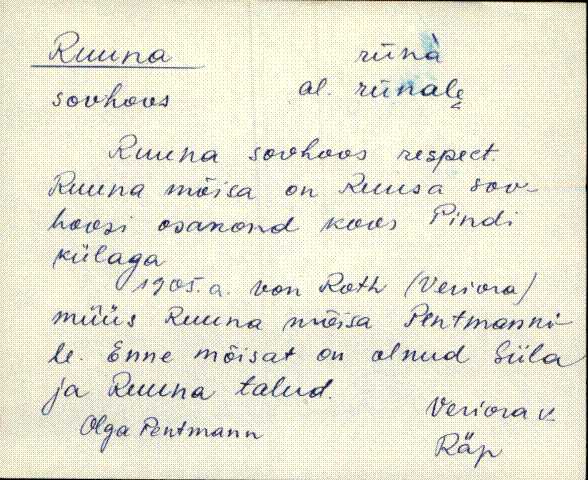 Ruuna rünà
sovhoos al. rünalę
Ruuna sovhoos respect.
Ruuna mõisa on Ruusa sov-
hoosi osakond koos Pindi
külaga
1905. a. von Roth (Veriora)
müüs Ruuna mõisa Pentmanni-
le. Enne mõisat on olnud Süla
ja Ruuna talud.
Olga Pentmann
Veriora v.
Räp